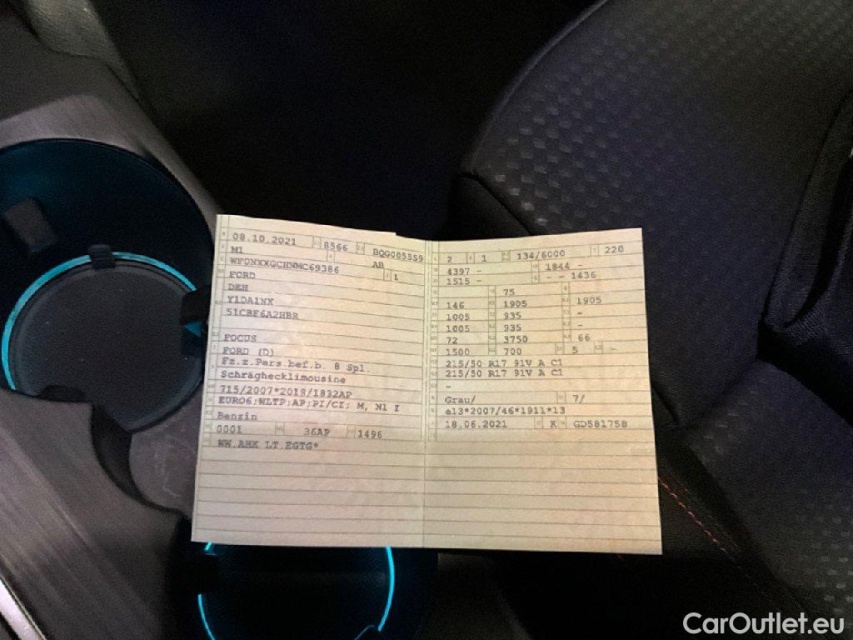 08.10.2021 8566 BQG005559
M1 AR
WF0NXXGCHNMC69386 1
FORD
DEH
Y1DA1NX
5ICBF6A2HBR
FOCUS
FORD (D)
Fz.z.Pers.bef.b. 8 Spl.
Schräghecklimousine
715/2007*2018/1832AP
EURO6;WLTP;AP;PI/CI; M, N1 I
Benzin
0001 36AP 1496
WW.AHK LT.EGTG*
2 1 134/6000 220
4397 - 1844 -
1515 - - - 1436
75
146 1905 1905
1005 935 -
1005 935 -
72 3750 66
1500 700 5 -
215/50 R17 91V A C1
215/50 R17 91V A C1
-
Grau/ 7/
e13*2007/46*1911*13
18.06.2021 K GD581758
CarOutlet.eu